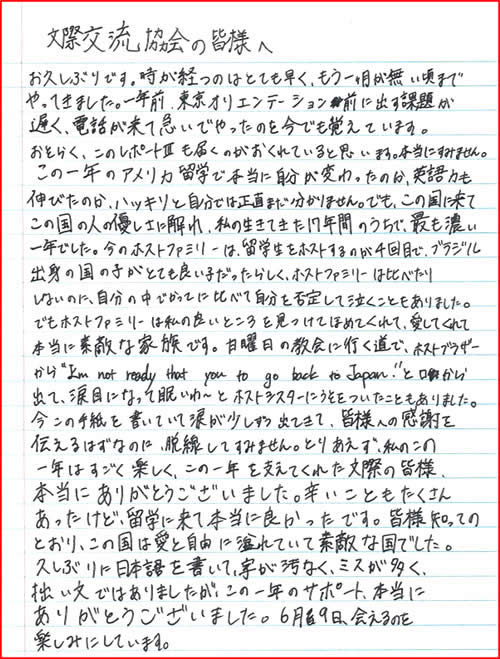 文際交流協会の皆様へ
お久しぶりです。時が経つのはとても早く、もう一ヶ月が無い頃まで
やってきました。一年前、東京オリエンテーション前に出す課題が
遅く、電話が来て急いでやったのを今でも覚えています。
おそらく、このレポートⅢも届くのがおくれていると思います。本当にすみません。
この一年のアメリカ留学で本当に自分が変わったのか、英語力も
伸びたのか、ハッキリと自分では正直まだ分かりません。でも、この国に来て
この国の人の優しさに触れ、私の生きてきた17年間のうちで、最も濃い
一年でした。今のホストファミリーは、留学生をホストするのが4回目で、ブラジル
出身の国の子がとても良い子だったらしく、ホストファミリーは比べたり
しないのに、自分の中でかってに比べて自分を否定して泣くこともありました。
でもホストファミリーは私の良いところを見つけてほめてくれて、愛してくれて
本当に素敵な家族です。日曜日の教会に行く道で、ホストブラザー
から"I'm not ready that you to go back to Japan."と口から
出て、涙目になって眠いわ〜とホストシスターにうそをついたこともありました。
今この手紙を書いていて涙が少しずつ出てきて、皆様への感謝を
伝えるはずなのに、脱線してすみません。とりあえず、私のこの
一年はすごく楽しく、この一年を支えてくれた文際の皆様、
本当にありがとうございました。辛いこともたくさん
あったけど、留学に来て本当に良かったです。皆様知っての
とおり、この国は愛と自由に溢れていて素敵な国でした。
久しぶりに日本語を書いて、字が汚なく、ミスが多く、
拙い文ではありましたが、この一年のサポート、本当に
ありがとうございました。6月9日、会えるのを
楽しみにしています。